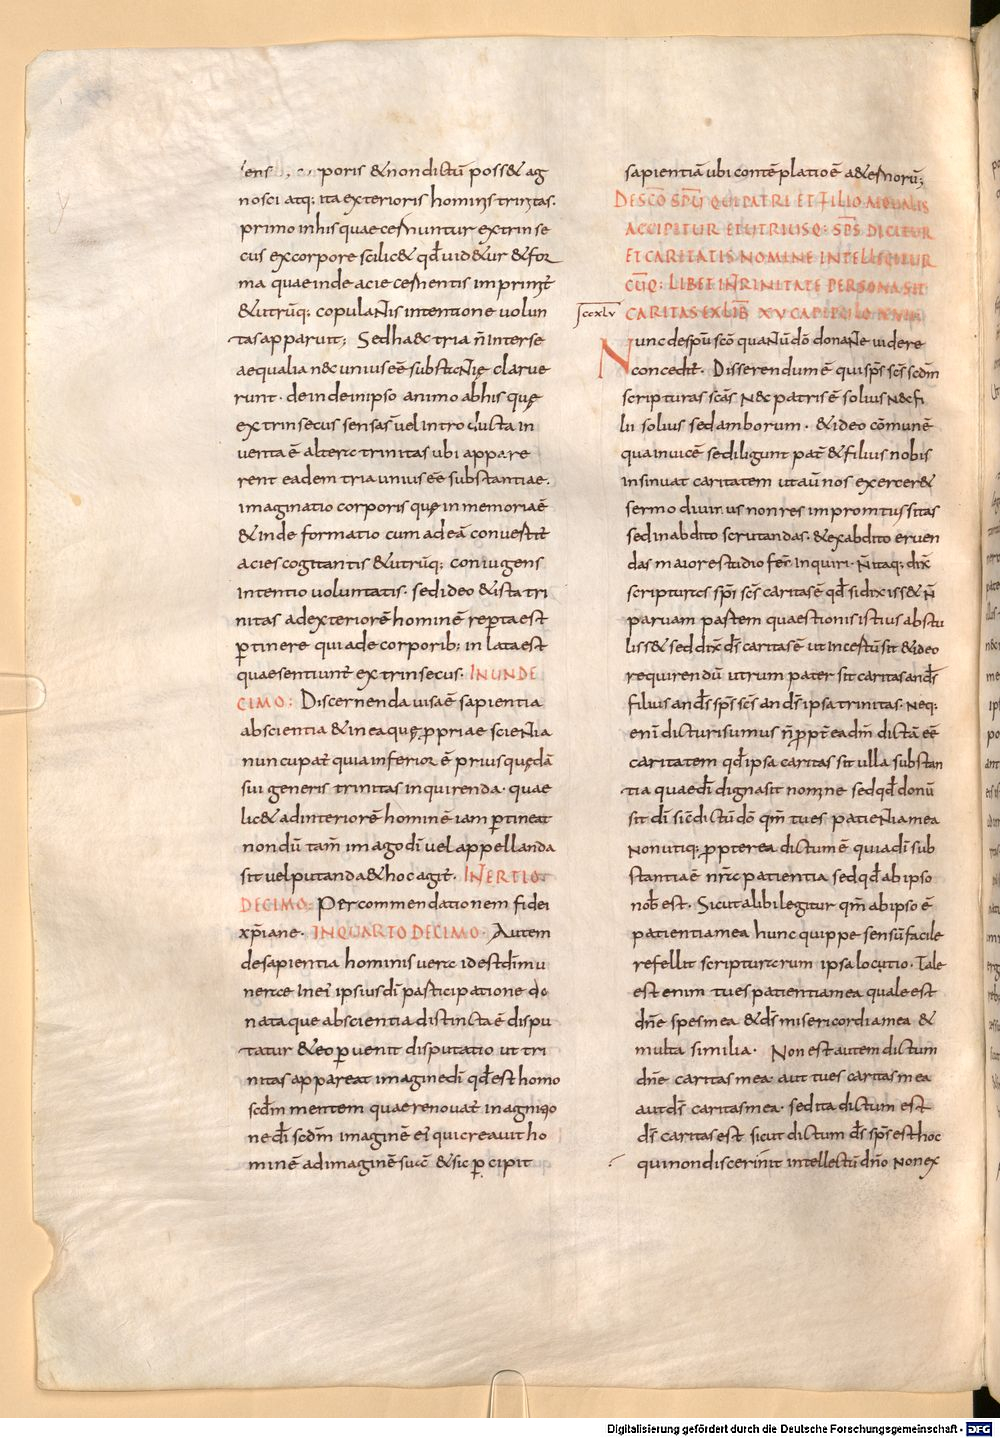 sens corporis & non dictū poss& ag
nosci atq; ita exterioris hominis trinitas.
primo in his quae cernuntur extrinse
cus ex corpore scilic& qđ uid&ur & for
ma quae inde acie cernentis imprimit̄
& utrūq; copulantis intentione uolun
tas apparuit; Sed haec tria n̄ inter se
aequalia nec unius eē substantię claruę
runt. deinde in ipso animo ab his quę
extrinsecus sensa s̄ uel introducta in
uenta ē altera trinitas ubi appare
rent eadem tria unius eē substantiae.
imaginatio corporis quę in memoria ē
& inde formatio cum ad eā conuertit̄
acies cogitantis & utrūq; coniugens
intentio uoluntatis. sed ideo & ista tri
nitas ad exteriorē hominē reperta est
ꝑtinere quia de corporib; inlata est
quae sentiunt̄ extrinsecus. IN UNDE
CIMO: Discernenda uisa ē sapientia
ab scientia & in ea quę ꝓpriae scientia
nuncupat̄ quia inferior ē prius quędā
sui generis trinitas inquirenda. quae
lic& ad interiorē hominē iam ꝑtineat
nondū tam̄ imago dī uel appellanda
sit uel putanda & hoc agit̄. IN TERTIO
DECIMO: Per commendationem fidei
xp̄iane. IN QUARTO DECIMO. Autem
de sapientia hominis uera id est dī mu
nere in ei ipsius dī participatione do
nata quae ab scientia distincta ē dispu
tatur & eo ꝑuenit disputatio ut tri
nitas appareat imagine dī qđ est homo
scđm mentem quae renouat̄ in agnitio
ne dī scđm imaginē ei qui creauit ho
minē ad imaginē suā & sic ꝑcipit
sapientiā ubi contēplatio ē aeternorū;
DE SC̄O SPŪ QUI PATRI ET FILIO AEQUALIS
ACCIPITUR ET UTRIUSQ: SPS̄ DICITUR
ET CARITATIS NOMINE INTELLEGITUR
CŪQ: LIBET IN TRINITATE PERSONA SIT
ccxlv CARITAS EX LIB̄ XV CAPITULO XVII
Nunc de spū sc̄o quantū dō donante uidere
concedit̄. Disserendum ē qui sps̄ sc̄s scđm
scripturas sc̄as nec patris ē solius nec fi
lii solius sed amborum. & ideo cōmunē
qua inuicē se diligunt pat̄ & filius nobis
insinuat caritatem ut aū nos exercer&
sermo diuinus non res in promtu sitas
sed in abdito scrutandas. & ex abdito eruen
das maiore studio fec̄ inquiri. n̄ itaq; dix̄
scriptures sps̄ sc̄s caritas ē qđ si dixiss& n̄
paruam partem quaestionis istius abstu
liss& sed dix̄ ds̄ caritas ē ut incertū sit & ideo
requirendū utrum pater sit caritas an ds̄
filius an ds̄ sps̄ sc̄s an ds̄ ipsa trinitas. neq;
enī dicturi sumus n̄ ꝓpt̄ea dm̄ dictā eē
caritatem qđ ipsa caritas sit ulla substan
tia quae dī digna sit nomine sed qđ donū
sit dī sic̄ dictū dō qm̄ tu es patientia mea
non utiq; ꝓpterea dictum ē quia dī sub
stantia ē nr̄a patientia sed qđ ab ipso
nob̄ est. Sicut alibi legitur qm̄ ab ipso ē
patientia mea hunc quippe sensū facile
refellit scripturarum ipsa locutio. Tale
est enim tu es patientia mea quale est
dn̄e spes mea & ds̄ misericordia mea &
multa similia. Non est autem dictum
dn̄e caritas mea aut tu es caritas mea
aut ds̄ caritas mea. sed ita dictum est
ds̄ caritas est sicut dictum ds̄ sps̄ est hoc
qui non discernit intellectū a dn̄o non ex
Digitalisierung gefördert durch die Deutsche Forschungsgemeinschaft - DFG